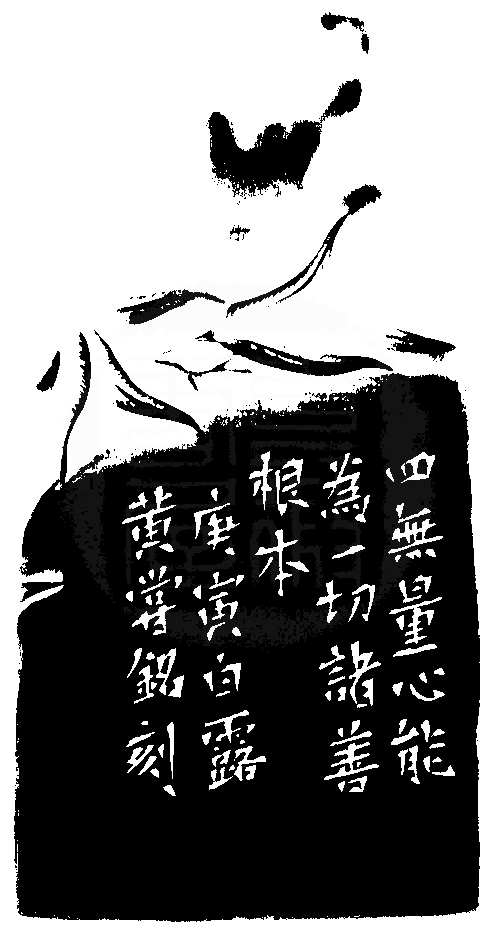 四無量心能
為一切諸善
根本
庚寅白露
黃嘗銘刻